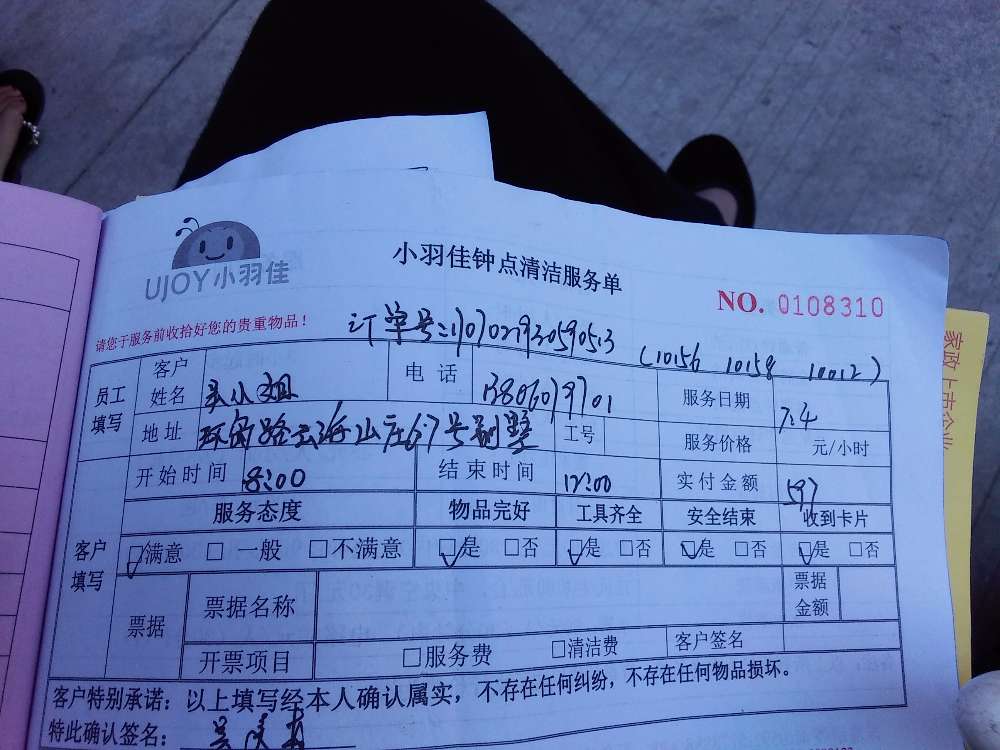 UJOY小羽佳
小羽佳钟点清洁服务单
NO. 0108310
请您于服务前收拾好您的贵重物品！
订单号: (10156 10158 10012)
员工填写 客户姓名 小姐 电话 服务日期 7.4
地址 环岛路云海山庄67号别墅 工号 服务价格 元/小时
客户填写 开始时间 8:00 结束时间 12:00 实付金额 597
服务态度 物品完好 工具齐全 安全结束 收到卡片
☑满意 □一般 □不满意 ☑是 □否 ☑是 □否 ☑是 □否 ☑是 □否
票据 票据名称 票据金额
开票项目 □服务费 □清洁费 客户签名
客户特别承诺：以上填写经本人确认属实，不存在任何纠纷，不存在任何物品损坏。
特此确认签名：